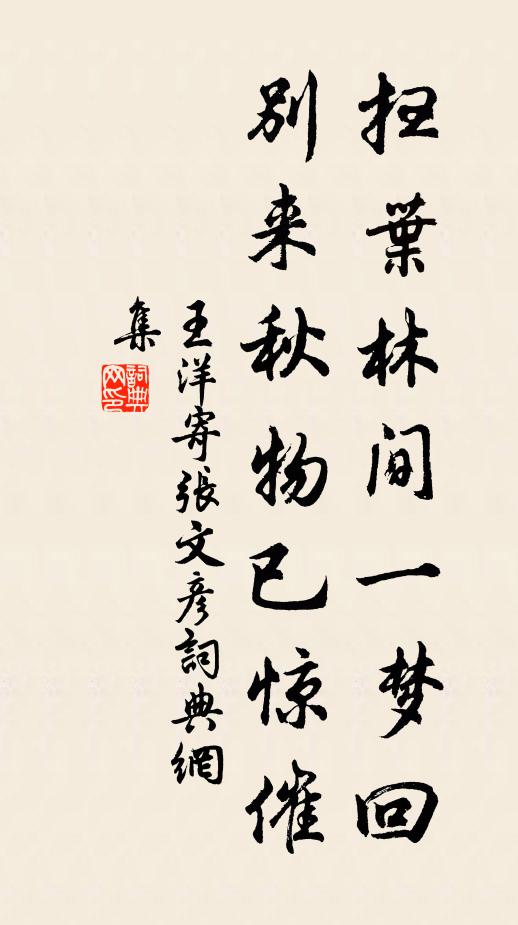 扫葉林间一梦回
别来秋物已惊催
王洋寄張文彦詞典網
集
詞典
网印